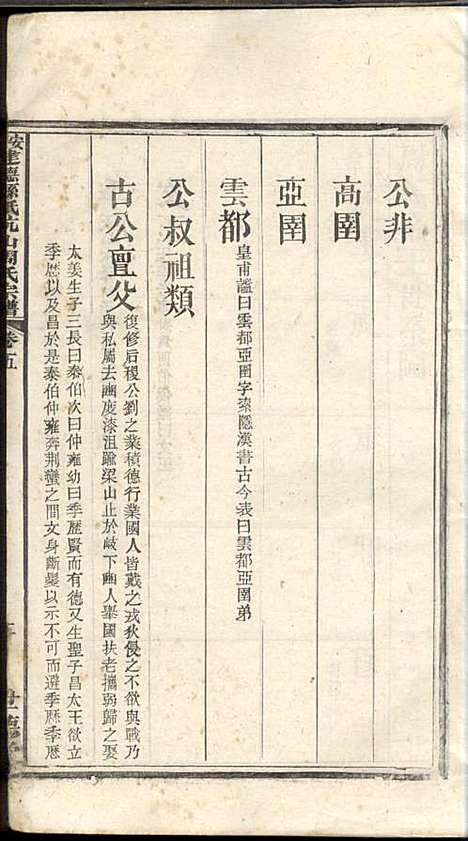 公非
高圉
亞圉
雲都 皇甫謐曰雲都亞圉字索隱漢書古今表曰雲都亞圉弟
公叔祖類
古公亶父 復修后稷公劉之業積德行業國人皆戴之戎狄侵之不欲與戰乃
與私屬去豳度漆沮踰梁山止於岐下豳人舉國扶老攜弱歸之娶
太姜生子三長曰泰伯次曰仲雍幼曰季歷賢而有德又生聖子昌太王欲立
季歷以及昌於是泰伯仲雍奔荆蠻之間文身斷髮以示不可而避季歷季歷
卷之五